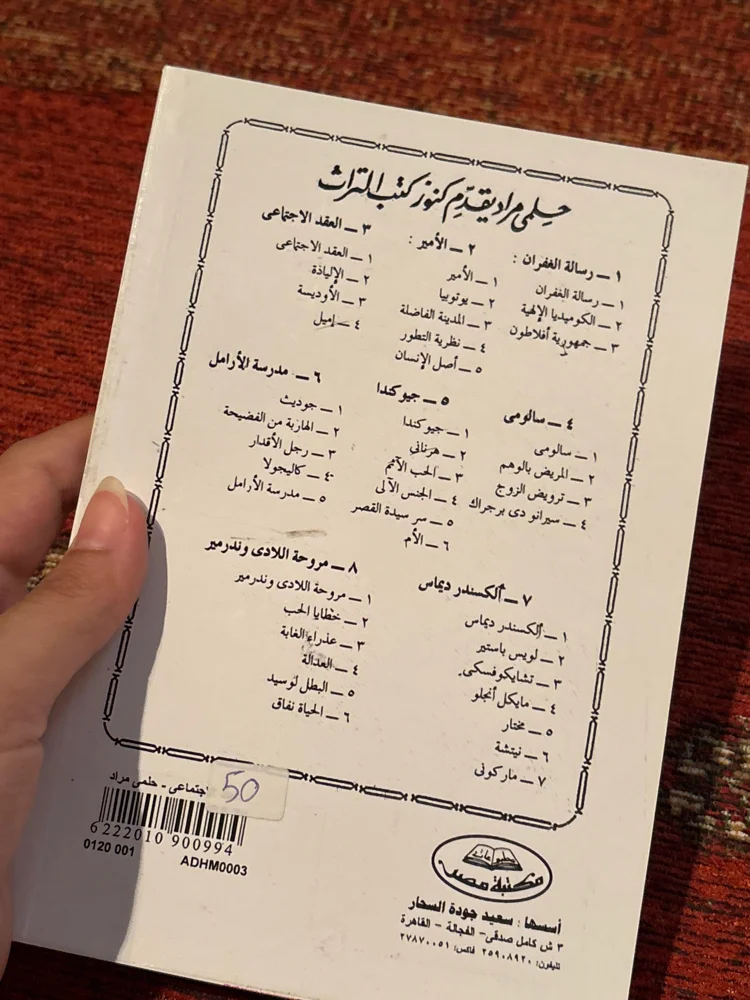 حلمى مراد يقدّم كنوز كتب التراث
١ ــ رسالة الغفران :
١ ــ رسالة الغفران
٢ ــ الكوميديا الإلهية
٣ ــ جمهورية أفلاطون
٢ ــ الأمير :
١ ــ الأمير
٢ ــ يوتوبيا
٣ ــ المدينة الفاضلة
٤ ــ نظرية التطور
٥ ــ أصل الإنسان
٣ ــ العقد الاجتماعى
١ ــ العقد الاجتماعى
٢ ــ الإلياذة
٣ ــ الأوديسة
٤ ــ إميل
٤ ــ سالومى
١ ــ سالومى
٢ ــ المريض بالوهم
٣ ــ ترويض الزوج
٤ ــ سيرانو دى برجراك
٥ ــ جيوكندا
١ ــ جيوكندا
٢ ــ هرنانى
٣ ــ الحب الآثم
٤ ــ الجنس الآلى
٥ ــ سر سيدة القصر
٦ ــ الأم
٦ ــ مدرسة الأرامل
١ ــ جوديث
٢ ــ الهاربة من الفضيحة
٣ ــ رجل الأقدار
٤ ــ كاليجولا
٥ ــ مدرسة الأرامل
٧ ــ ألكسندر ديماس
١ ــ ألكسندر ديماس
٢ ــ لويس باستير
٣ ــ تشايكوفسكى
٤ ــ مايكل أنجلو
٥ ــ مختار
٦ ــ نيتشة
٧ ــ ماركونى
٨ ــ مروحة اللادى وندرمير
١ ــ مروحة اللادى وندرمير
٢ ــ خطايا الحب
٣ ــ عذراء الغابة
٤ ــ العدالة
٥ ــ البطل لوسيد
٦ ــ الحياة نفاق
جتماعى - حلمى مراد
50
6222010 900994
0120 001
ADHM0003
مطبوعات
مكتبة مصر
أسسها : سعيد جودة السحار
٣ ش كامل صدقى - الفجالة - القاهرة
تليفون: ٢٥٩٠٨٩٢٠ فاكس: ٢٧٨٧٠٠٥١